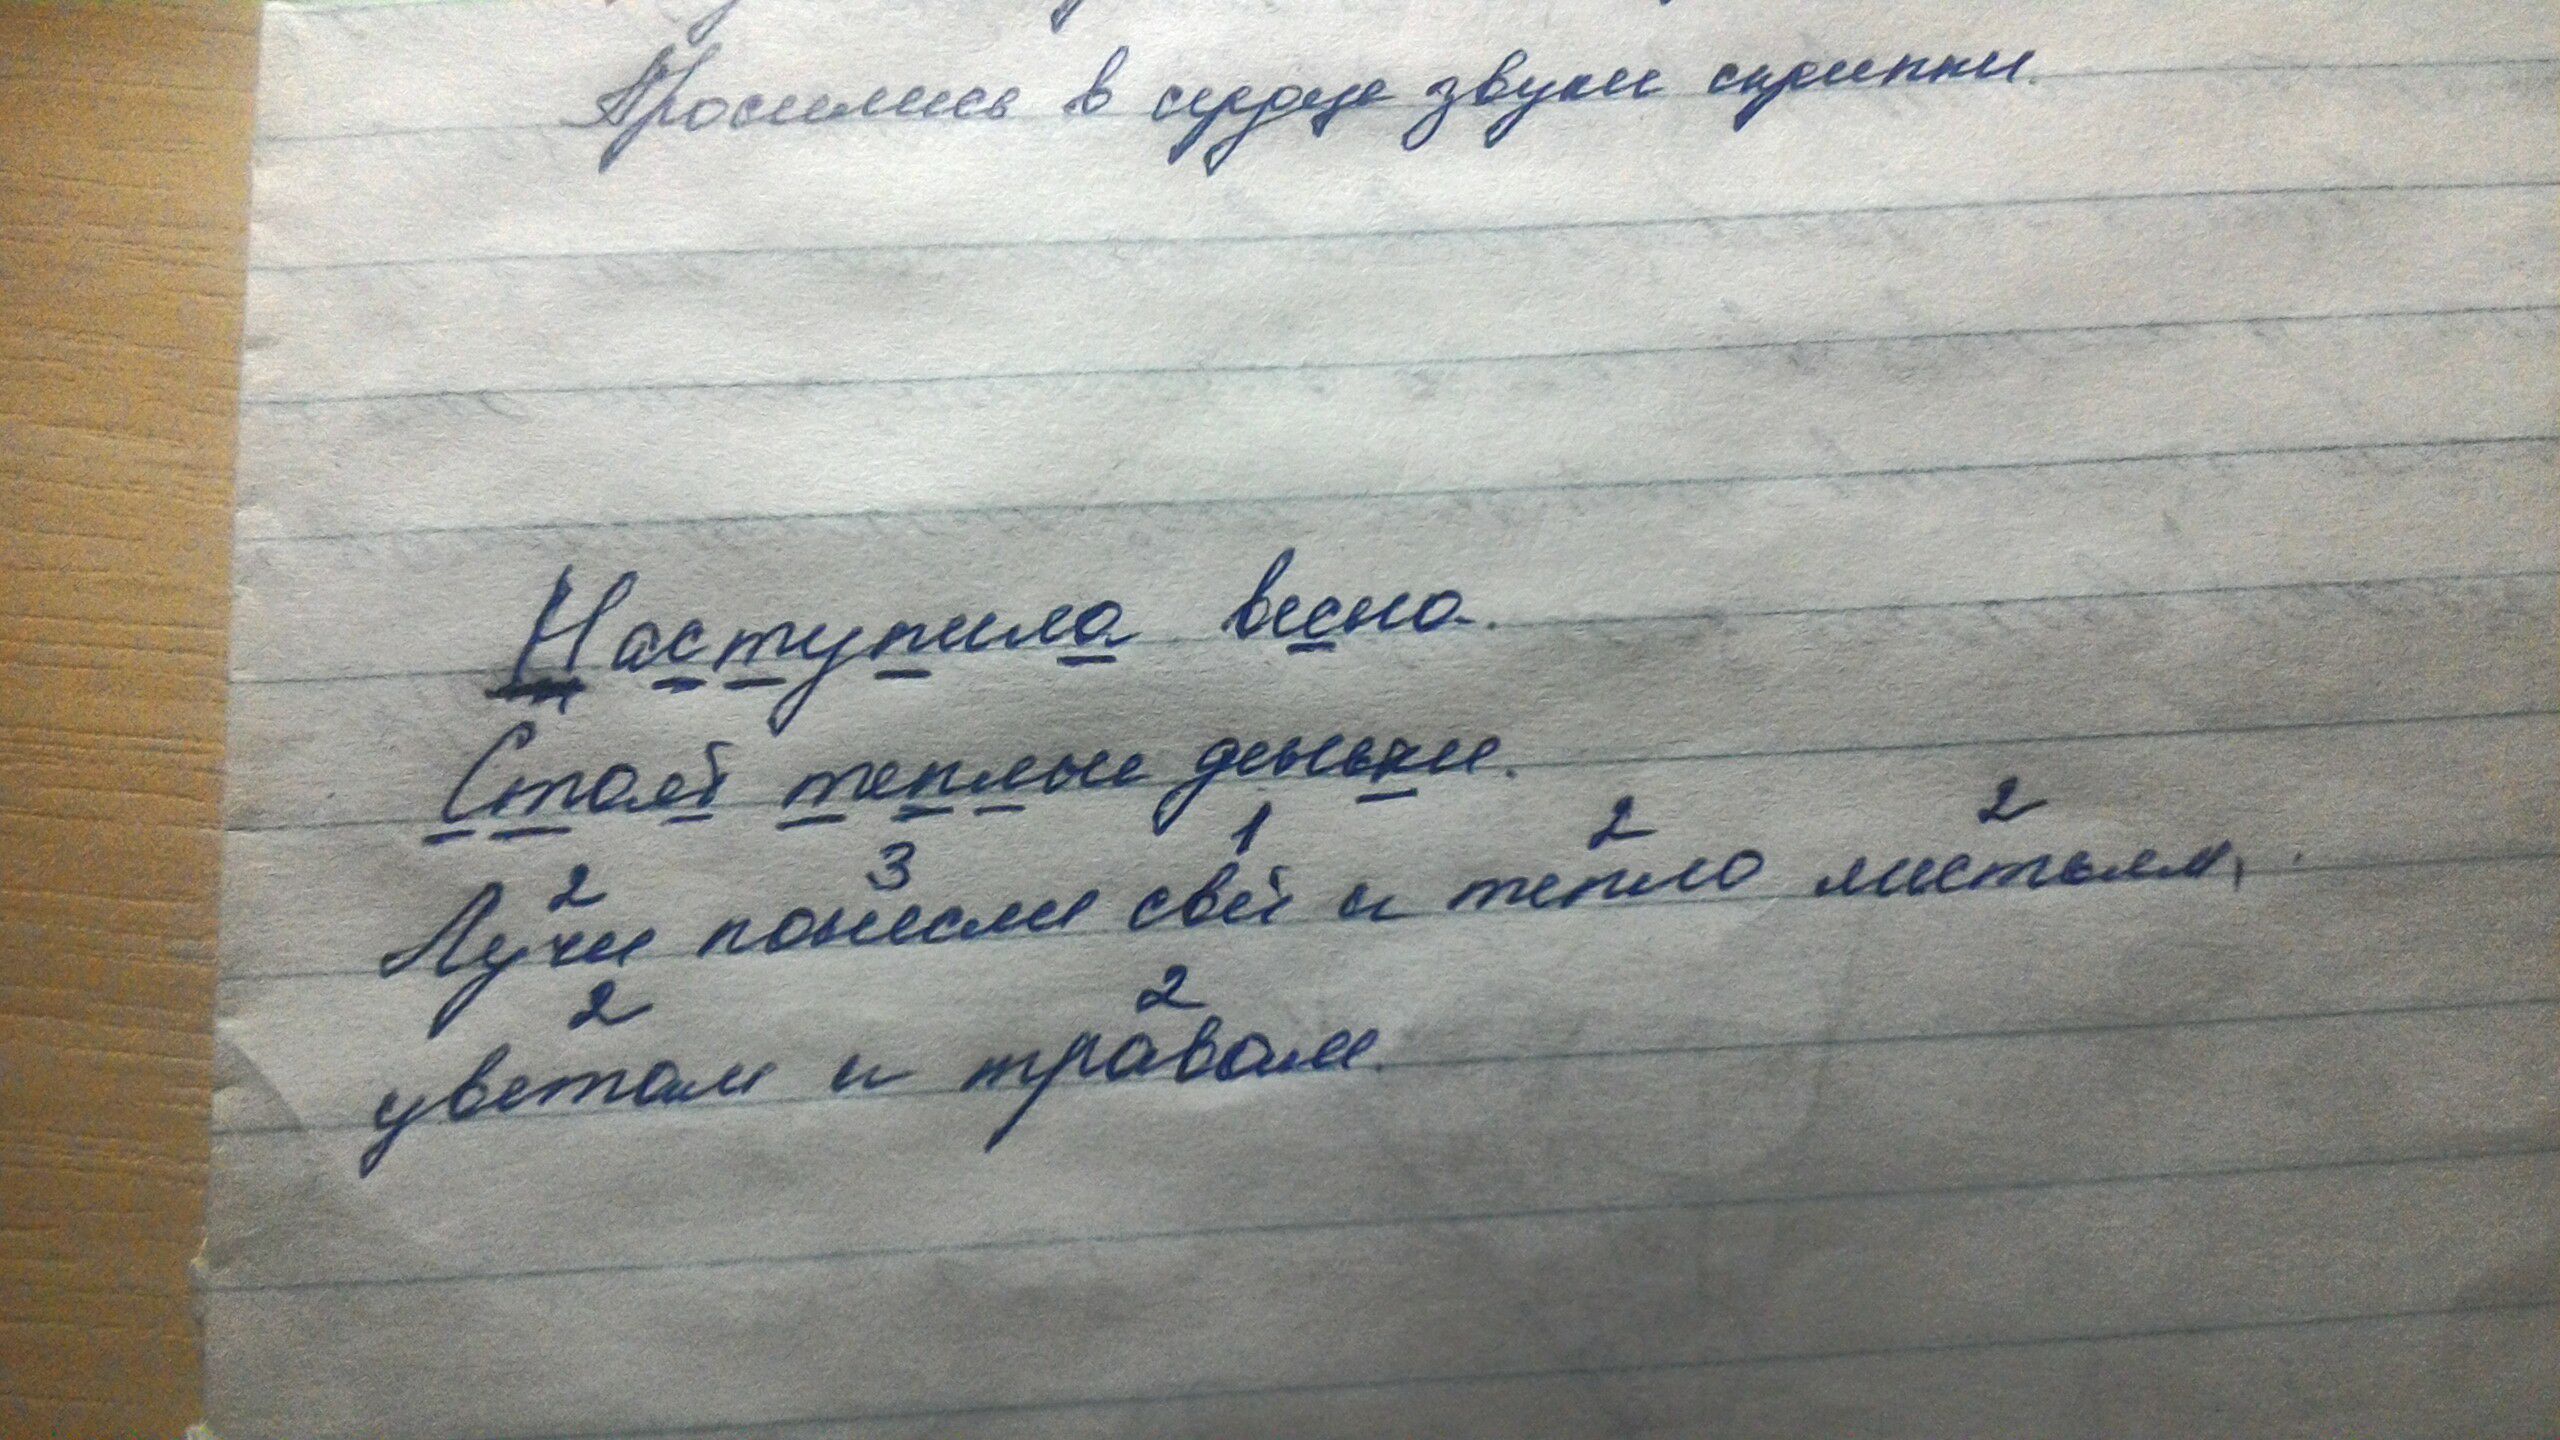 Просились в сердце звуки скрипки.
Наступила весна.
Стоят теплые деньки.
2 3 1 2 2
Лучи понесли свет и тепло листьям,
2 2
цветам и травам.